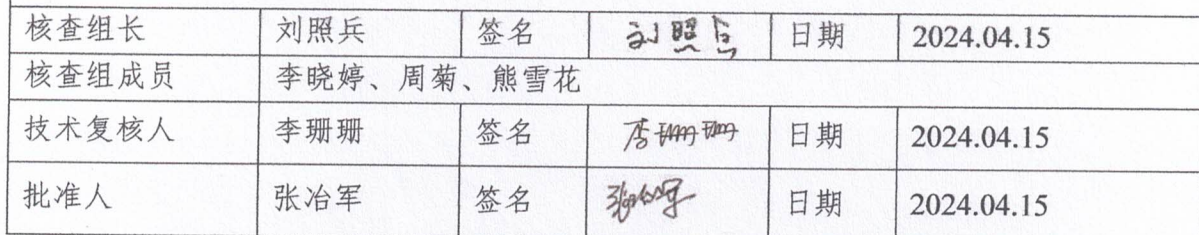 核查组长 刘照兵 签名 刘照兵 日期 2024.04.15
核查组成员 李晓婷、周菊、熊雪花
技术复核人 李珊珊 签名 李珊珊 日期 2024.04.15
批准人 张冶军 签名 张冶军 日期 2024.04.15